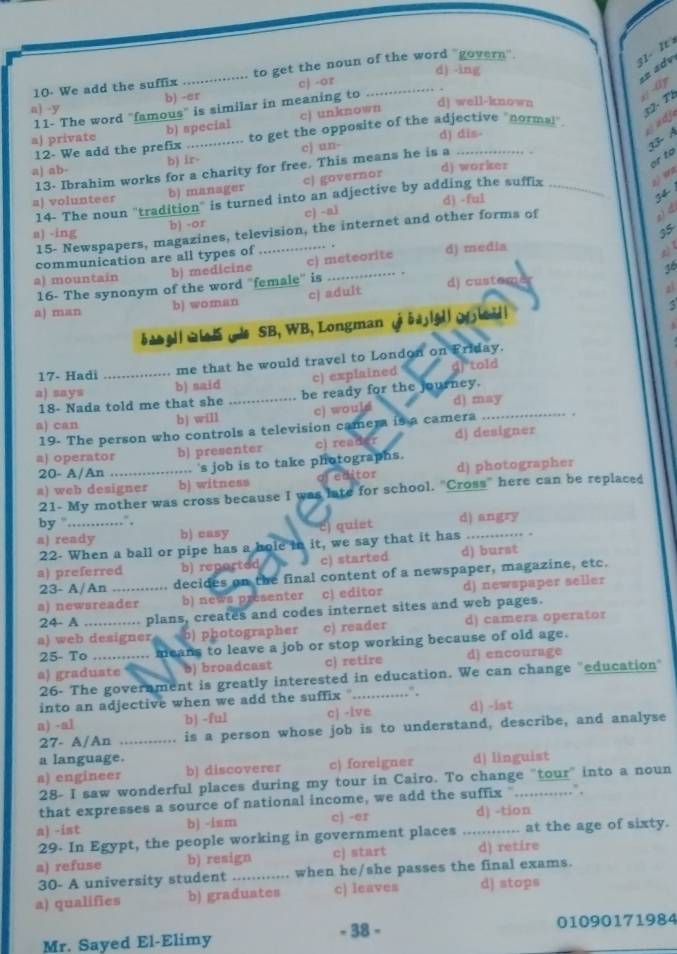 10- We add the suffix .............. to get the noun of the word "govern".
a) -y b) -er c) -or d) -ing
11- The word "famous" is similar in meaning to .............. .
a) private b) special c) unknown d) well-known
12- We add the prefix ............. to get the opposite of the adjective "normal".
a) ab- b) ir- c) un- d) dis-
13- Ibrahim works for a charity for free. This means he is a .............. .
a) volunteer b) manager c) governor d) worker
14- The noun "tradition" is turned into an adjective by adding the suffix ............
a) -ing b) -or c) -al d) -ful
15- Newspapers, magazines, television, the internet and other forms of
communication are all types of .............. .
a) mountain b) medicine c) meteorite d) media
16- The synonym of the word "female" is .............. .
a) man b) woman c) adult d) customer
التمارين الواردة في SB, WB, Longman على كلمات الوحدة
17- Hadi .............. me that he would travel to London on Friday.
a) says b) said c) explained d) told
18- Nada told me that she .............. be ready for the journey.
a) can b) will c) would d) may
19- The person who controls a television camera is a camera ................. .
a) operator b) presenter c) reader d) designer
20- A/An ................. 's job is to take photographs.
a) web designer b) witness c) editor d) photographer
21- My mother was cross because I was late for school. "Cross" here can be replaced
by "............".
a) ready b) easy c) quiet d) angry
22- When a ball or pipe has a hole in it, we say that it has ............ .
a) preferred b) reported c) started d) burst
23- A/An ............ decides on the final content of a newspaper, magazine, etc.
a) newsreader b) news presenter c) editor d) newspaper seller
24- A ............ plans, creates and codes internet sites and web pages.
a) web designer b) photographer c) reader d) camera operator
25- To ............ means to leave a job or stop working because of old age.
a) graduate b) broadcast c) retire d) encourage
26- The government is greatly interested in education. We can change "education"
into an adjective when we add the suffix "............".
a) -al b) -ful c) -ive d) -ist
27- A/An ............ is a person whose job is to understand, describe, and analyse
a language.
a) engineer b) discoverer c) foreigner d) linguist
28- I saw wonderful places during my tour in Cairo. To change "tour" into a noun
that expresses a source of national income, we add the suffix "............".
a) -ist b) -ism c) -er d) -tion
29- In Egypt, the people working in government places ............ at the age of sixty.
a) refuse b) resign c) start d) retire
30- A university student ............ when he/she passes the final exams.
a) qualifies b) graduates c) leaves d) stops
Mr. Sayed El-Elimy
- 38 -
01090171984
Mr. Sayed El-Elimy
31- It's
32- Th
33- A
or to
34-
35-
36